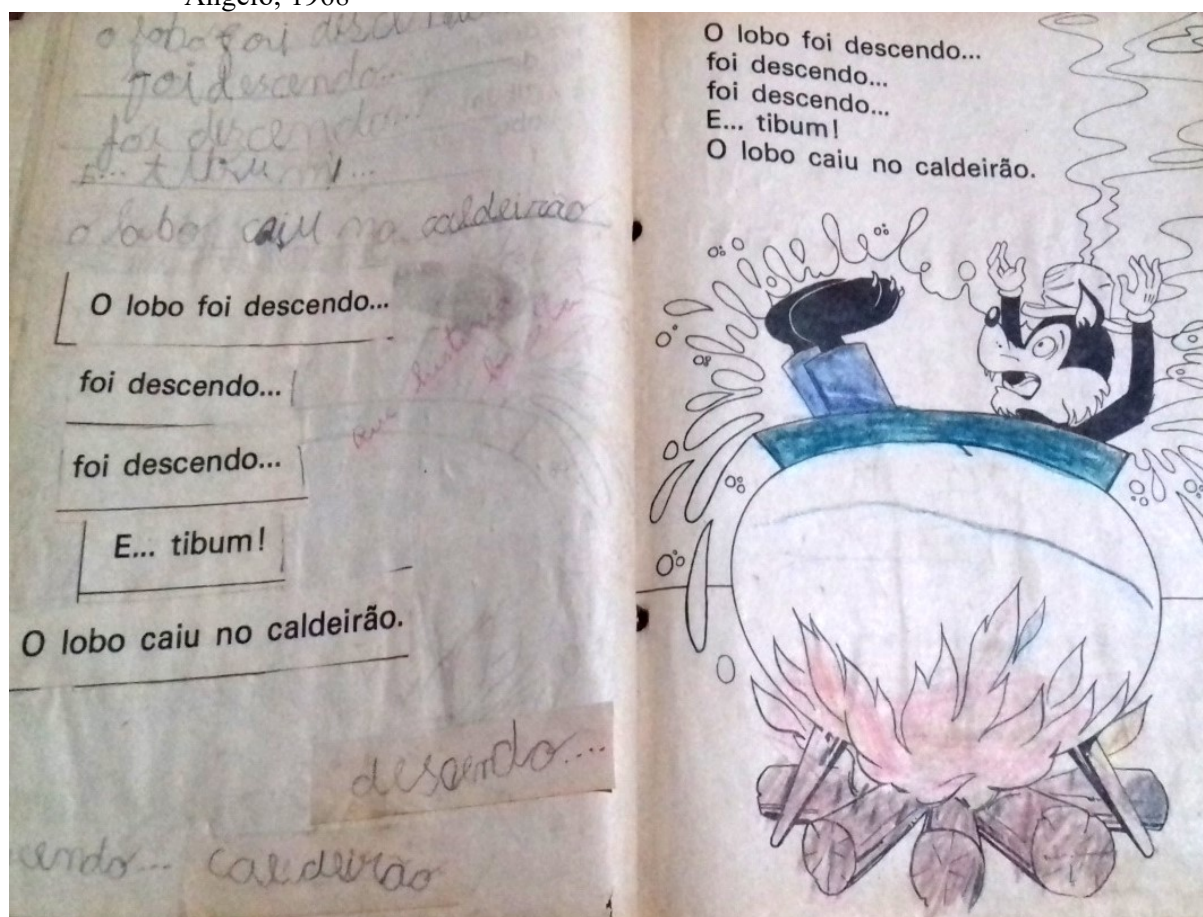 Angelo, 1968
o lobo foi
foi descendo...
foi descendo...
E... tibum...
o lobo caiu no caldeirão
O lobo foi descendo...
foi descendo...
foi descendo...
E... tibum!
O lobo caiu no caldeirão.
desendo...
cendo... caldeirão
O lobo foi descendo...
foi descendo...
foi descendo...
E... tibum!
O lobo caiu no caldeirão.